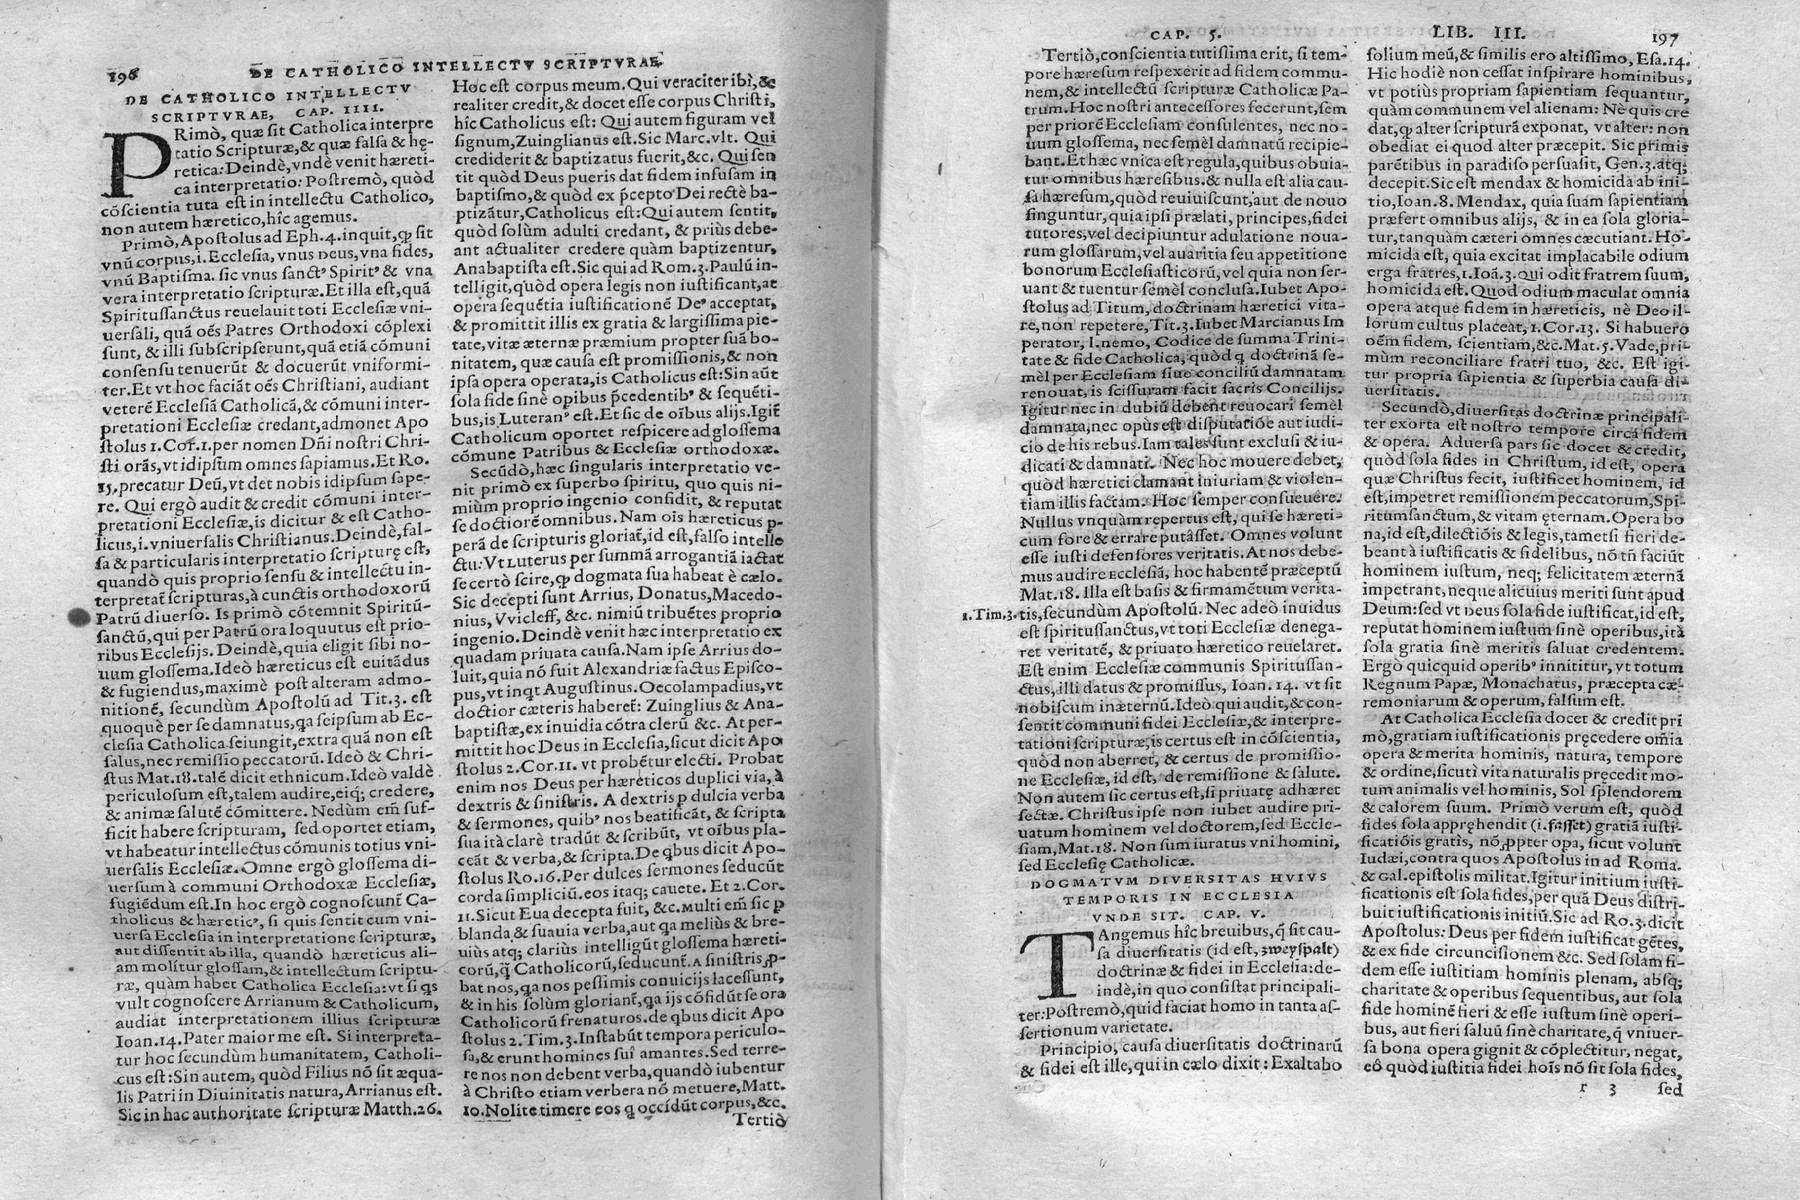 196
DE CATHOLICO INTELLECTV SCRIPTVRAE,
DE CATHOLICO INTELLECTV
SCRIPTVRAE, CAP. IIII.
PRimò, quæ sit Catholica interpre
tatio Scripturæ, & quæ falsa & hę-
retica: Deindè, vndè venit hæreti-
ca interpretatio: Postremò, quòd
cōscientia tuta est in intellectu Catholico,
non autem hæretico, hîc agemus.
Primò, Apostolus ad Eph. 4. inquit, ꝙ sit
vnū corpus, i. Ecclesia, vnus Deus, vna fides,
vnū Baptisma. sic vnus sanctꝰ Spiritꝰ & vna
vera interpretatio scripturæ. Et illa est, quā
Spiritussanctus reuelauit toti Ecclesiæ vni-
uersali, quā oēs Patres Orthodoxi cōplexi
sunt, & illi subscripserunt, quā etiā cōmuni
consensu tenuerūt & docuerūt vniformi-
ter. Et vt hoc faciāt oēs Christiani, audiant
veterē Ecclesiā Catholicā, & cōmuni inter-
pretationi Ecclesiæ credant, admonet Apo
stolus 1. Cor. 1. per nomen Dn̄i nostri Chri-
sti orās, vt idipsum omnes sapiamus. Et Ro.
15. precatur Deū, vt det nobis idipsum sape-
re. Qui ergò audit & credit cōmuni inter-
pretationi Ecclesiæ, is dicitur & est Catho-
licus, i. vniuersalis Christianus. Deindè, fal-
sa & particularis interpretatio scripturę est,
quandò quis proprio sensu & intellectu in-
terpretat᷑ scripturas, à cunctis orthodoxorū
Patrū diuerso. Is primò cōtemnit Spiritū-
sanctū, qui per Patrū ora loquutus est prio-
ribus Ecclesijs. Deindè, quia eligit sibi no-
uum glossema. Ideò hæreticus est euitādus
& fugiendus, maximè post alteram admo-
nitionē, secundùm Apostolū ad Tit. 3. est
quoquè per se damnatus, ꝗa seipsum ab Ec-
clesia Catholica seiungit, extra quā non est
salus, nec remissio peccatorū. Ideò & Chri-
stus Mat. 18. talē dicit ethnicum. Ideò valdè
periculosum est, talem audire, eiꝗ; credere,
& animæ salutē cōmittere. Nedùm em̄ suf-
ficit habere scripturam, sed oportet etiam,
vt habeatur intellectus cōmunis totius vni-
uersalis Ecclesiæ. Omne ergò glossema di-
uersum à communi Orthodoxæ Ecclesiæ,
fugiēdum est. In hoc ergò cognoscunt᷑ Ca-
tholicus & hæreticꝰ, si quis sentit cum vni-
uersa Ecclesia in interpretatione scripturæ,
aut dissentit ab illa, quandò hæreticus ali-
am molitur glossam, & intellectum scriptu-
ræ, quàm habet Catholica Ecclesia: vt si ꝗs
vult cognoscere Arrianum & Catholicum,
audiat interpretationem illius scripturæ
Ioan. 14. Pater maior me est. Si interpreta-
tur hoc secundùm humanitatem, Catholi-
cus est: Sin autem, quòd Filius nō sit æqua-
lis Patri in Diuinitatis natura, Arrianus est.
Sic in hac authoritate scripturæ Matth. 26.
Hoc est corpus meum. Qui veraciter ibi, &
realiter credit, & docet esse corpus Christi,
hîc Catholicus est: Qui autem figuram vel
signum, Zuinglianus est. Sic Marc. vlt. Qui
crediderit & baptizatus fuerit, &c. Qui sen
tit quòd Deus pueris dat fidem infusam in
baptismo, & quòd ex p̄cepto Dei rectè ba-
ptizātur, Catholicus est: Qui autem sentit,
quòd solùm adulti credant, & priùs debe-
ant actualiter credere quàm baptizentur,
Anabaptista est. Sic qui ad Rom. 3. Paulū in-
telligit, quòd opera legis non iustificant, at
opera sequētia iustificationē Deꝰ acceptat,
& promittit illis ex gratia & largissima pie-
tate, vitæ æternæ præmium propter suā bo-
nitatem, quæ causa est promissionis, & non
ipsa opera operata, is Catholicus est: Sin aūt
sola fide sinè opibus p̄cedentibꝰ & sequēti-
bus, is Luteranꝰ est. Et sic de oībus alijs. Igit᷑
Catholicum oportet respicere ad glossema
cōmune Patribus & Ecclesiæ orthodoxæ.
Secūdò, hæc singularis interpretatio ve-
nit primò ex superbo spiritu, quo quis ni-
miùm proprio ingenio confidit, & reputat
se doctiorē omnibus. Nam oīs hæreticus ꝑ-
perā de scripturis gloriat᷑, id est, falso intelle
ctu. Vt Luterus per summā arrogantiā iactat
se certò scire, ꝙ dogmata sua habeat è cælo.
Sic decepti sunt Arrius, Donatus, Macedo-
nius, Vvicleff, &c. nimiū tribuētes proprio
ingenio. Deindè venit hæc interpretatio ex
quadam priuata causa. Nam ipse Arrius do-
luit, quia nō fuit Alexandriæ factus Episco-
pus, vt inqt Augustinus. Oecolampadius, vt
doctior cæteris haberet᷑: Zuinglius & Ana-
baptistæ, ex inuidia cōtra clerū &c. At per-
mittit hoc Deus in Ecclesia, sicut dicit Apo
stolus 2. Cor. 11. vt probētur electi. Probat
enim nos Deus per hæreticos duplici via, à
dextris & sinistris. A dextris ꝑ dulcia verba
& sermones, quibꝰ nos beatificāt, & scripta
sua ità clarè tradūt & scribūt, vt oībus pla-
ceāt & verba, & scripta. De ꝗbus dicit Apo-
stolus Ro. 16. Per dulces sermones seducūt
corda simpliciū. eos itaꝗ; cauete. Et 2. Cor.
11. Sicut Eua decepta fuit, &c. Multi em̄ sic ꝑ
blanda & suauia verba, aut ꝗa meliùs & bre-
uiùs atꝗ; clariùs intelligūt glossema hæreti-
corū, ꝗ̄ Catholicorū, seducunt᷑. A sinistris, ꝓ-
bat nos, ꝗa nos pessimis conuicijs lacessunt,
& in his solùm gloriant᷑, ꝗa ijs cōfidūt se ora
Catholicorū frenaturos. de ꝗbus dicit Apo
stolus 2. Tim. 3. Instabūt tempora periculo-
sa, & erunt homines sui amantes. Sed terre-
re nos non debent verba, quandò iubentur
à Christo etiam verbera nō metuere, Matt.
10. Nolite timere eos ꝗ occidūt corpus, &c.
Tertiò
CAP. 5. LIB. III. 197
Tertiò, conscientia tutissima erit, si tem-
pore hæresum respexerit ad fidem commu-
nem, & intellectū scripturæ Catholicæ Pa-
trum. Hoc nostri antecessores fecerunt, sem
per priorē Ecclesiam consulentes, nec no-
uum glossema, nec semèl damnatū recipie-
bant. Et hæc vnica est regula, quibus obuia-
tur omnibus hæresibus. & nulla est alia cau-
sa hæresum, quòd reuiuiscunt, aut de nouo
finguntur, quia ipsi prælati, principes, fidei
tutores, vel decipiuntur adulatione noua-
rum glossarum, vel auaritia seu appetitione
bonorum Ecclesiasticorū, vel quia non ser-
uant & tuentur semèl conclusa. Iubet Apo-
stolus ad Titum, doctrinam hæretici vita-
re, non repetere, Tit. 3. Iubet Marcianus Im
perator, l. nemo, Codice de summa Trini-
tate & fide Catholica, quòd ꝗ doctrinā se-
mèl per Ecclesiam siue conciliū damnatam
renouat, is scissuram facit sacris Concilijs.
Igitur nec in dubiū debent reuocari semèl
damnata, nec opus est disputatiōe aut iudi-
cio de his rebus. Iam tales sunt exclusi & iu-
dicati & damnati. Nec hoc mouere debet,
quòd hæretici clamant iniuriam & violen-
tiam illis factam. Hoc semper consueuere.
Nullus vnquàm repertus est, qui se hæreti-
cum fore & errare putâsset. Omnes volunt
esse iusti defensores veritatis. At nos debe-
mus audire Ecclesiā, hoc habentē præceptū
Mat. 18. Illa est basis & firmamētum verita-
1. Tim. 3. tis, secundùm Apostolū. Nec adeò inuidus
est spiritussanctus, vt toti Ecclesiæ denega-
ret veritatē, & priuato hæretico reuelaret.
Est enim Ecclesiæ communis Spiritussan-
ctus, illi datus & promissus, Ioan. 14. vt sit
nobiscum inæternū. Ideò qui audit, & con-
sentit communi fidei Ecclesiæ, & interpre-
tationi scripturæ, is certus est in cōscientia,
quòd non aberret, & certus de promissio-
ne Ecclesiæ, id est, de remissione & salute.
Non autem sic certus est, si priuatę adhæret
sectæ. Christus ipse non iubet audire pri-
uatum hominem vel doctorem, sed Eccle-
siam, Mat. 18. Non sum iuratus vni homini,
sed Ecclesię Catholicæ.
DOGMATVM DIVERSITAS HVIVS
TEMPORIS IN ECCLESIA
VNDE SIT. CAP. V.
TAngemus hîc breuibus, ꝗ̄ sit cau-
sa diuersitatis (id est, zweyspalt)
doctrinæ & fidei in Ecclesia: de-
indè, in quo consistat principali-
ter: Postremò, quid faciat homo in tanta as-
sertionum varietate.
Principio, causa diuersitatis doctrinarū
& fidei est ille, qui in cælo dixit: Exaltabo
solium meū, & similis ero altissimo, Esa. 14.
Hic hodiè non cessat inspirare hominibus,
vt potiùs propriam sapientiam sequantur,
quàm communem vel alienam: Nè quis cre
dat, ꝙ alter scripturā exponat, vt alter: non
obediat ei quod alter præcepit. Sic primis
parētibus in paradiso persuasit, Gen. 3. atꝗ;
decepit. Sic est mendax & homicida ab ini-
tio, Ioan. 8. Mendax, quia suam sapientiam
præfert omnibus alijs, & in ea sola gloria-
tur, tanquàm cæteri omnes cæcutiant. Ho-
micida est, quia excitat implacabile odium
erga fratres, 1. Ioā. 3. Qui odit fratrem suum,
homicida est. Quod odium maculat omnia
opera atque fidem in hæreticis, nè Deo il-
lorum cultus placeat, 1. Cor. 13. Si habuero
oēm fidem, scientiam, &c. Mat. 5. Vade, pri-
mùm reconciliare fratri tuo, &c. Est igi-
tur propria sapientia & superbia causa di-
uersitatis.
Secundò, diuersitas doctrinæ principali-
ter exorta est nostro tempore circa fidem
& opera. Aduersa pars sic docet & credit,
quòd sola fides in Christum, id est, opera
quæ Christus fecit, iustificet hominem, id
est, impetret remissionem peccatorum, Spi-
ritumsanctum, & vitam ęternam. Opera bo
na, id est, dilectiōis & legis, tametsi fieri de-
beant à iustificatis & fidelibus, nō tn̄ faciūt
hominem iustum, neꝗ; felicitatem æternā
impetrant, neque alicuius meriti sunt apud
Deum: sed vt Deus sola fide iustificat, id est,
reputat hominem iustum sinè operibus, ità
sola gratia sinè meritis saluat credentem.
Ergò quicquid operibꝰ innititur, vt totum
Regnum Papæ, Monachatus, præcepta cæ-
remoniarum & operum, falsum est.
At Catholica Ecclesia docet & credit pri
mò, gratiam iustificationis pręcedere om̄ia
opera & merita hominis, natura, tempore
& ordine, sicuti vita naturalis pręcedit mo-
tum animalis vel hominis, Sol splendorem
& calorem suum. Primò verum est, quòd
fides sola apprehendit (i. fasset) gratiā iusti-
ficatiōis gratìs, nō ꝓpter opa, sicut volunt
Iudæi, contra quos Apostolus in ad Roma.
& Gal. epistolis militat. Igitur initium iusti-
ficationis est sola fides, per quā Deus distri-
buit iustificationis initiū. Sic ad Ro. 3. dicit
Apostolus: Deus per fidem iustificat gētes,
& ex fide circuncisionem &c. Sed solam fi-
dem esse iustitiam hominis plenam, absꝗ;
charitate & operibus sequentibus, aut sola
fide hominē fieri & esse iustum sinè operi-
bus, aut fieri saluū sinè charitate, ꝗ vniuer-
sa bona opera gignit & cōplectitur, negat,
eò quòd iustitia fidei hoīs nō sit sola fides,
r 3 sed